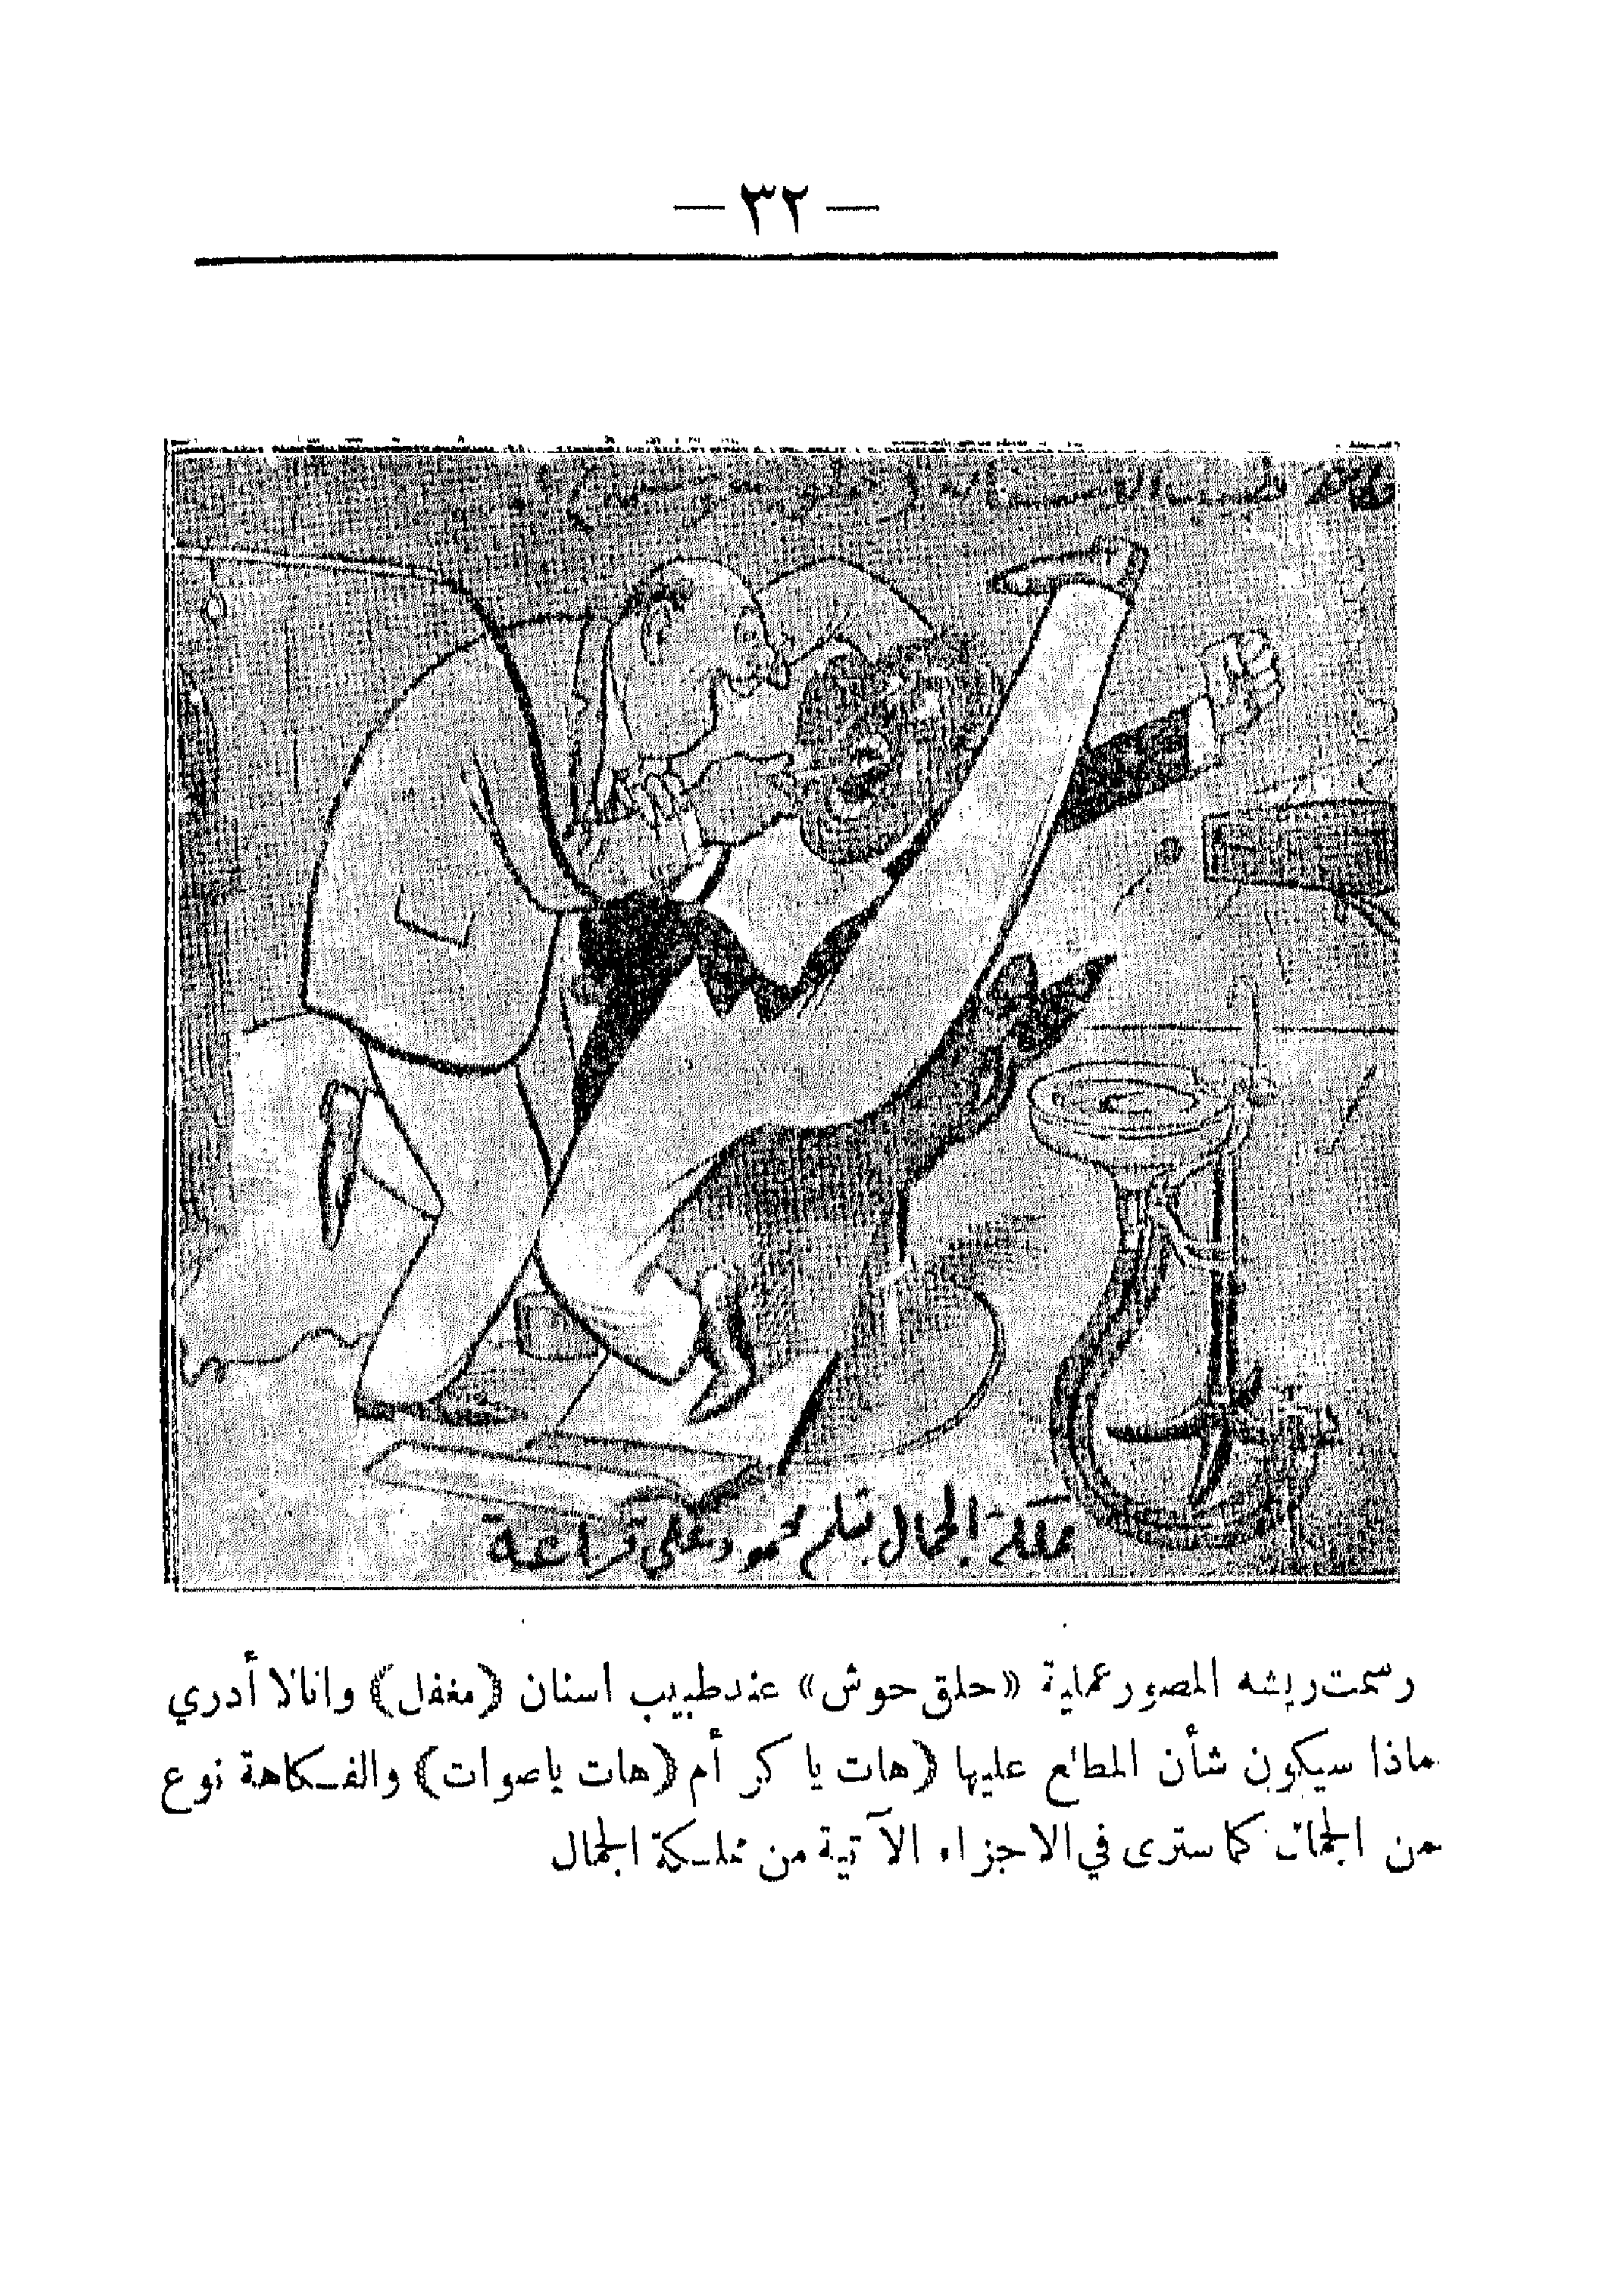 — ٣٢ —
طبيب الاسنان
مملكة الجمال بقلم محمود علي قراعة
رسمت ريشه المصور عملية «حلق حوش» عند طبيب اسنان (مغفل) وانا لا أدري
ماذا سيكون شأن المطلع عليها (هات يا كر أم (هات ياصوات) والفكاهة نوع
من الجمال كما سترى في الاجزاء الآتية من مملكة الجمال